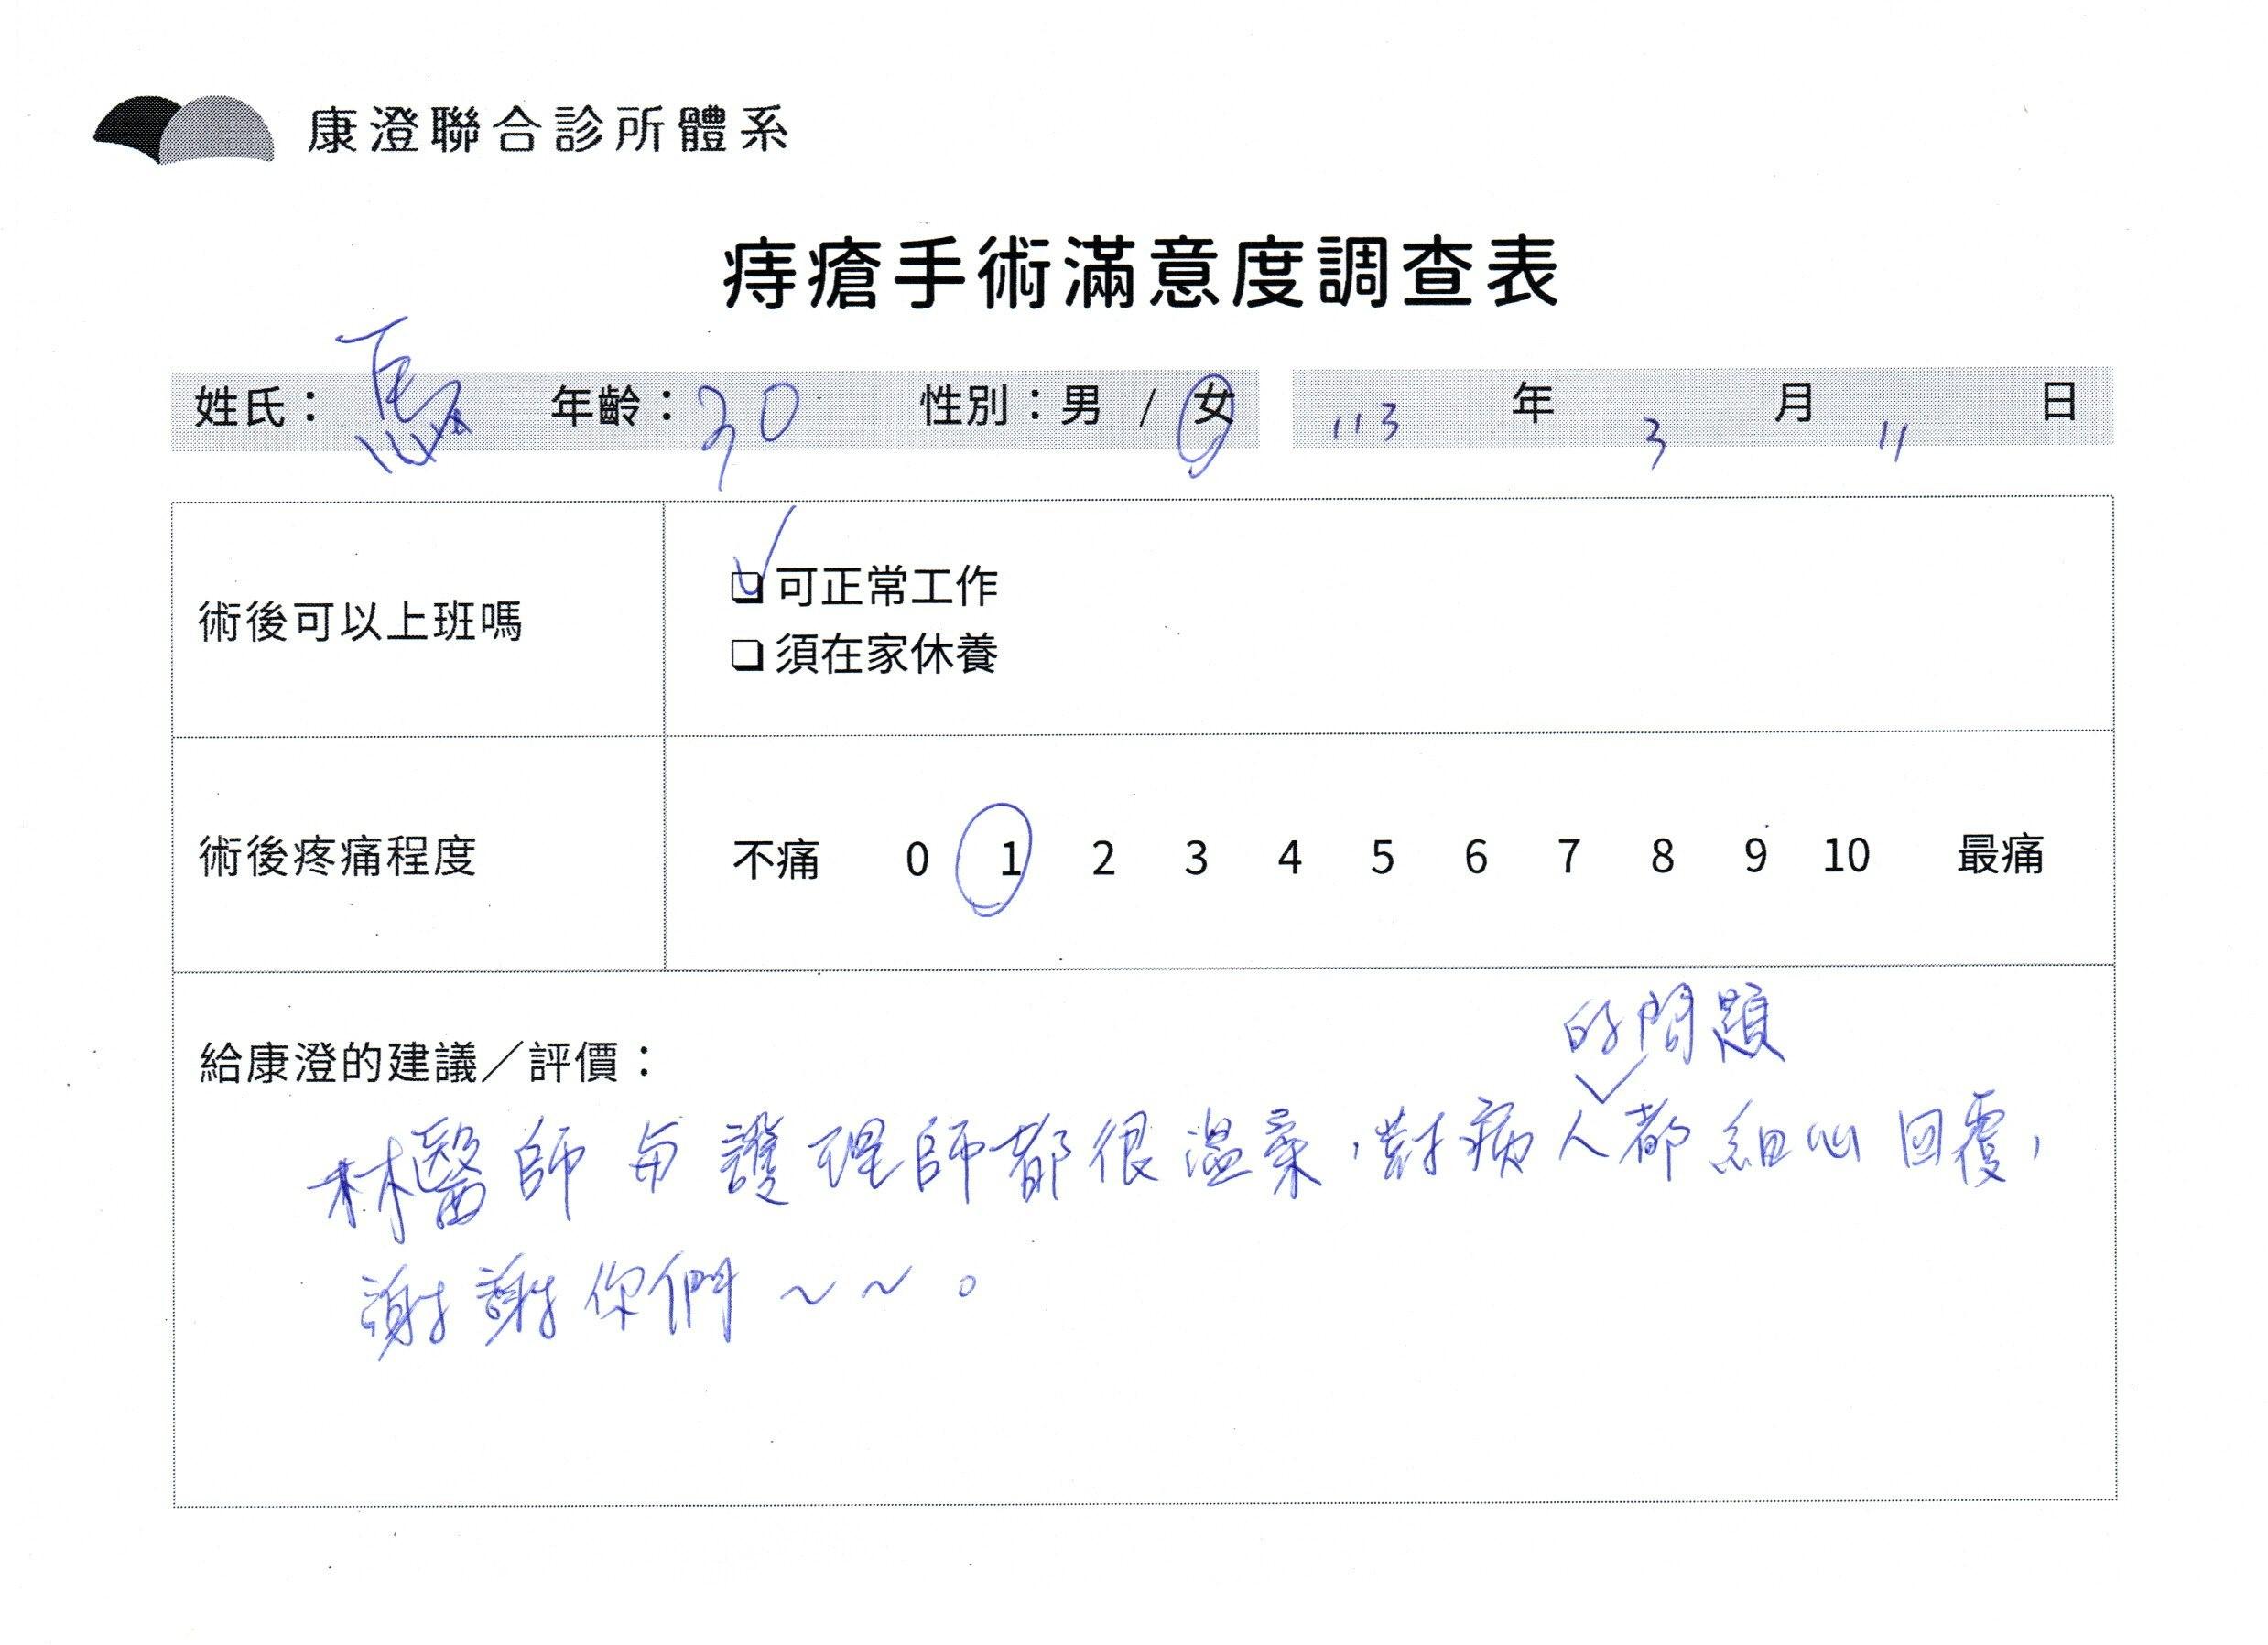 康澄聯合診所體系
痔瘡手術滿意度調查表
姓氏：馬 年齡：30 性別：男 / 女 113 年 3 月 11 日
術後可以上班嗎
✓ 可正常工作
❑ 須在家休養
術後疼痛程度
不痛 0 1 2 3 4 5 6 7 8 9 10 最痛
給康澄的建議／評價：
的問題
林醫師與護理師都很溫柔，對病人都細心回覆，
謝謝你們～～。